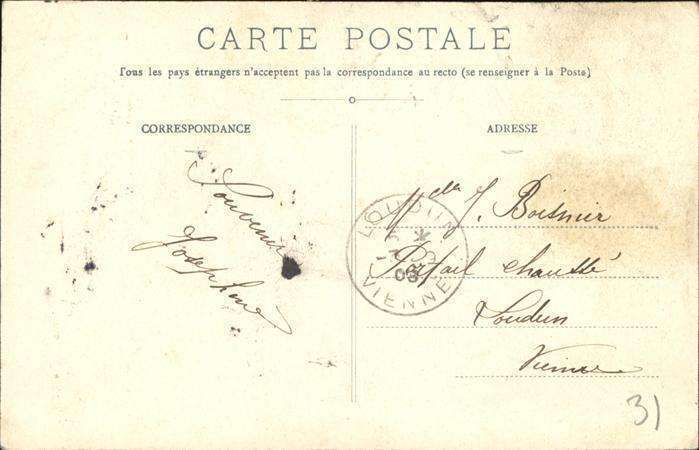 CARTE POSTALE
Tous les pays étrangers n'acceptent pas la correspondance au recto (se renseigner à la Poste)
CORRESPONDANCE
ADRESSE
Souvenir
Joséphine
J. Boisnier
Portail chaussé
Loudun
Vienne
LOUDUN
03
VIENNE
31